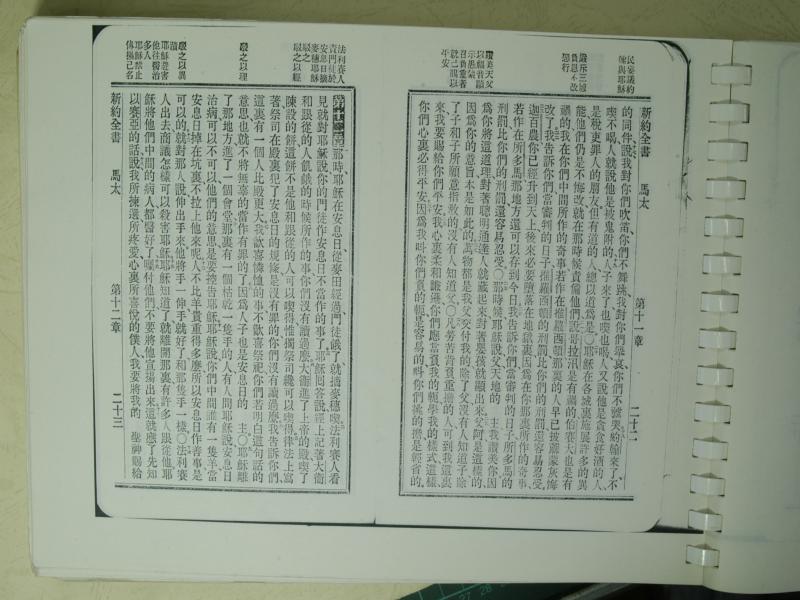 新約全書 馬太 第十一章 二十二
民妄議約
翰與耶穌
嚴斥三城
負恩不改
惡行
讚美天父
以福音顯
示愚蒙
召負重者
就己賜以
平安
的同伴說我對你們吹笛你們不舞蹈我對你們舉哀你們不啼哭約翰來了不
喫不喝人就說他是被鬼附的人子來了也喫也喝人又說他是貪食好酒的人
是稅吏罪人的朋友但有道的人總以道為是○耶穌在各城裏施展許多的異
能他們仍是不悔改就在那時候責備他們說哥拉汛是有禍的伯賽大也是有
禍的我在你們中間所作的奇事若作在推羅西頓那裏的人早已披麻蒙灰悔
改了我告訴你們當審判的日子推羅西頓的刑罰比你們的刑罰還容易忍受
迦百農你已經升到天上後來必要墮落在地獄裏因為在你那裏所作的奇事
若作在所多馬那地方還可以存到今日我告訴你們當審判的日子所多馬的
刑罰比你們的刑罰還容易忍受○那時候耶穌說父天地的主我讚美你因
為你將這道理對著聰明通達人就藏起來對著嬰孩就顯出來父阿是這樣的
因為你的意旨本是如此的萬物都是我父交付我的除了父沒有人知道子除
了子和子所願意指教的沒有人知道父○凡勞苦背負重擔的人可到我這裏
來我要賜給你們平安我心裏柔和謙遜你們應當負我的軛學我的樣式這樣
你們心裏必得平安因為我叫你們負的軛是容易的叫你們挑的擔是輕省的
法利賽人
責門徒於
安息日摘
麥穗耶穌
駁之
駁之以經
駁之以理
駁之以異
蹟
耶穌避害
他往醫治
多人
耶穌禁止
傳揚己名
第十二章那時耶穌在安息日從麥田經過門徒餓了就摘麥穗喫法利賽人看
見就對耶穌說你的門徒作安息日不當作的事了耶穌回答說經上記著大衛
和跟從的人飢餓的時候所作的事你們沒有讀過麼大衛進了上帝的殿喫了
陳設的餅這餅不是他和跟從的人可以喫得惟獨祭司纔可以喫得律法上寫
著祭司在殿裏犯了安息日的規條是沒有罪的你們沒有讀過麼我告訴你們
這裏有一個人比殿更大我歡喜憐恤的事不歡喜祭祀你們若明白這句話的
意思也就不將無辜的當作有罪的了因為人子也是安息日的主○耶穌離
了那地方進了一個會堂那裏有一個枯乾一隻手的人有人問耶穌說安息日
治病可以不可以他們的意思是要控告耶穌耶穌說你們中間誰有一隻羊當
安息日掉在坑裏不拉上他來呢人不比羊貴重得多麼所以安息日作善事是
可以的就對那人說伸出手來他將手一伸手就好了和那隻手一樣○法利賽
人出去商議怎樣可以殺害耶穌耶穌知道了就離開那裏有許多人跟從他耶
穌將他們中間的病人都醫好了囑付他們不要將他宣揚出來這就應了先知
以賽亞的話說我所揀選所疼愛心裏所喜悅的僕人我要將我的聖神賜給
新約全書 馬太 第十二章 二十三
27 28